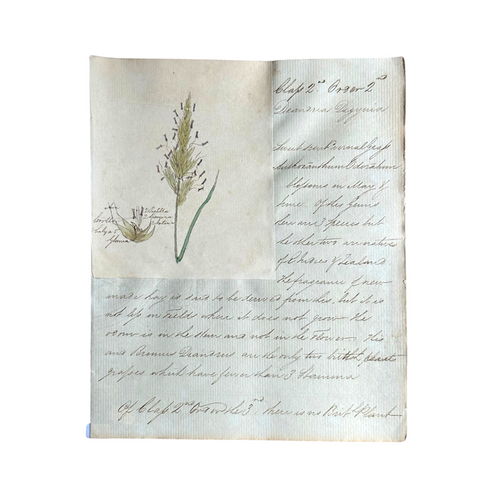 Class 2nd Order 2nd
Diandria Digynia
Sweet Scented Vernal Grass
Anthoxanthum Odoratum
blossoms in May &
June. Of this Genus
there are 3 species but
the other two are natives
of & Zealand
The fragrance of new
made hay is said to be derived from this, but it is
not less in Fields where it does not grow the
odour is in the Stem and not in the flower. This
and Bromus Diandrus are the only two British
grasses which have fewer than 3 Stamina
Of Class 2nd Order the 3rd there is no Brit. Plant
Corolla
Calyx &
Pistilla
Stamina